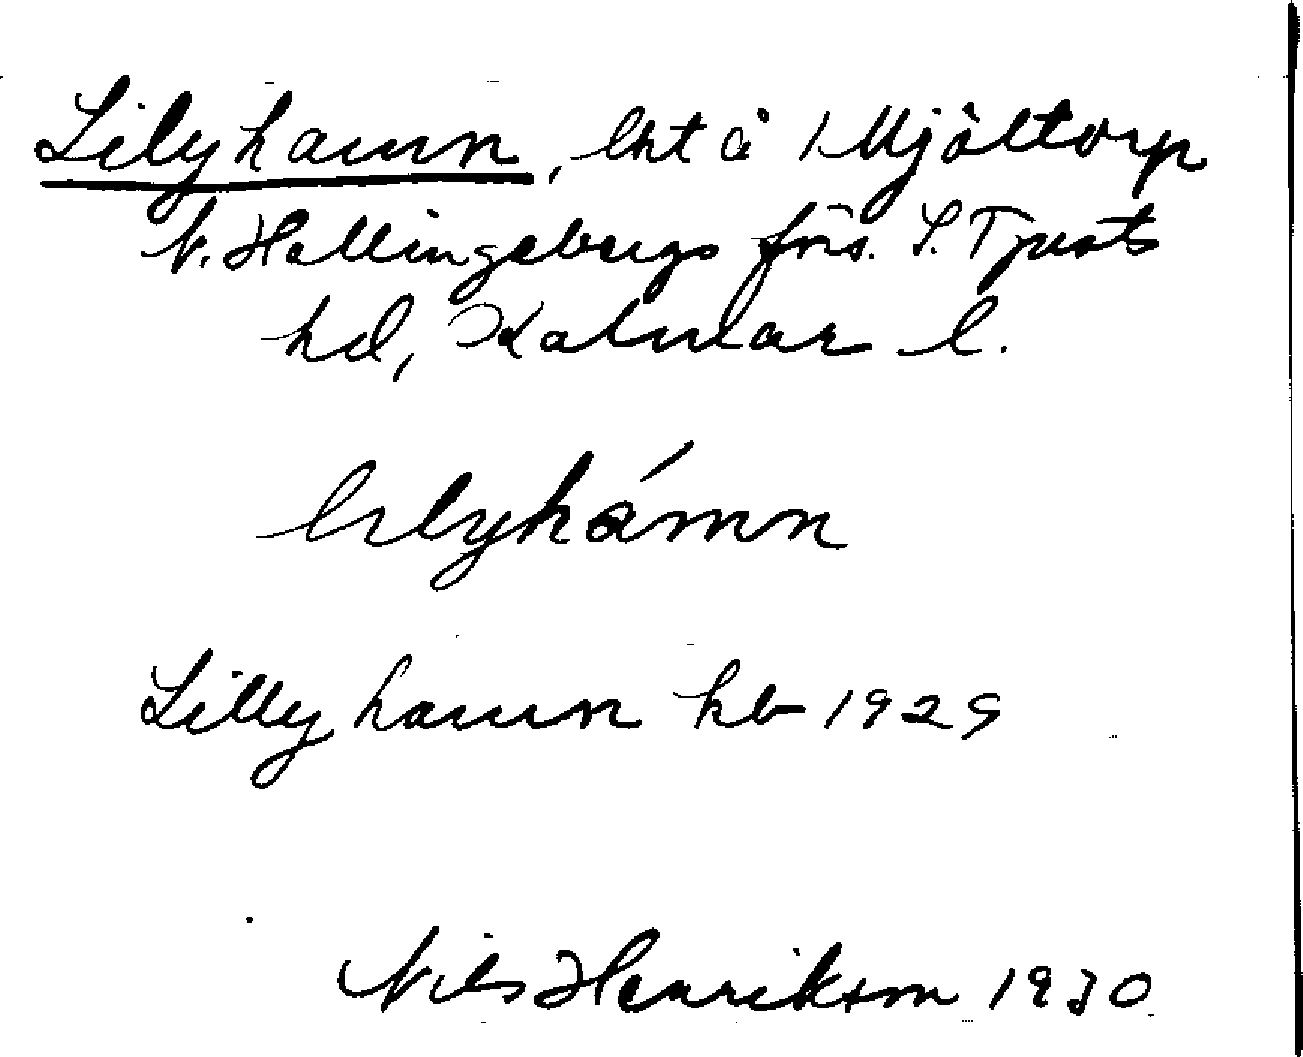 Lilyhamn, lht å 1 Mjöltorp
V. Hallingebergs förs. S. Tjusts
hd, Kalmar l.
lılyhámn
Lillyhamn kb 1929
Nils Henrikson 1930